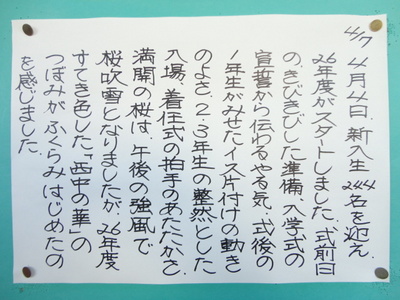 4/7
4月4日、新入生244名を迎え、
26年度がスタートしました。式前日
の、きびきびした準備、入学式の
宣誓から伝わるやる気、式後の
1年生がみせたイス片付けの動き
のよさ、2・3年生の整然とした
入場、着任式の拍手のあたたかさ。
満開の桜は、午後の強風で
桜吹雪となりましたが、26年度
すてき色した「西中の華」の
つぼみがふくらみはじめたの
を感じました。